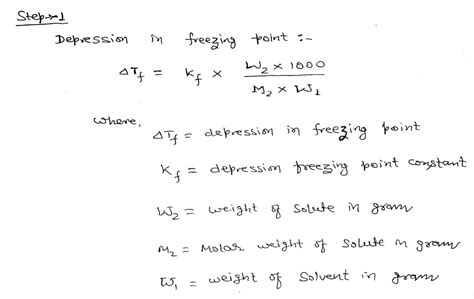 Step→1
Depression in freezing point :-
ΔTf = Kf × W2 × 1000 / M2 × W1
where,
ΔTf = depression in freezing point
Kf = depression freezing point constant
W2 = weight of solute in gram
M2 = Molar weight of solute in gram
W1 = weight of Solvent in gram